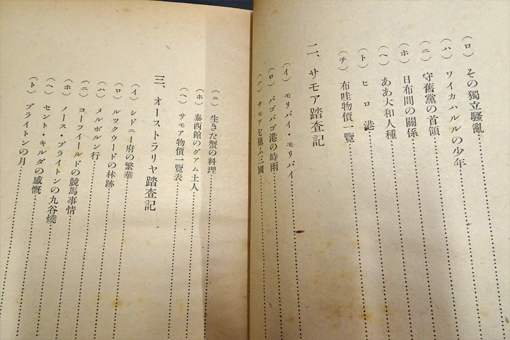 (ロ) その獨立騷亂
(ハ) ワイカハルルの少年
(ニ) 守舊黨の首領
(ホ) 日布間の關係
(ヘ) ああ大和人種
(ト) ヒロ港
(チ) 布哇物價一覽
二、サモア踏査記
(イ) モリバイ・モリバイ
(ロ) パゴパゴ港の時雨
(ハ) サモアを狙ふ三國
(ニ) 生きた蟹の料理
(ホ) 泰西館のグアム土人
(ヘ) サモア物價一覽表
三、オーストラリヤ踏査記
(イ) シドニー府の繁華
(ロ) ルックウードの林跡
(ハ) メルボルン行
(ニ) コーフィールドの競馬事情
(ホ) ノース・ブライトンの九谷燒
(ヘ) セント・キルダの感慨
(ト) ブライトンの月